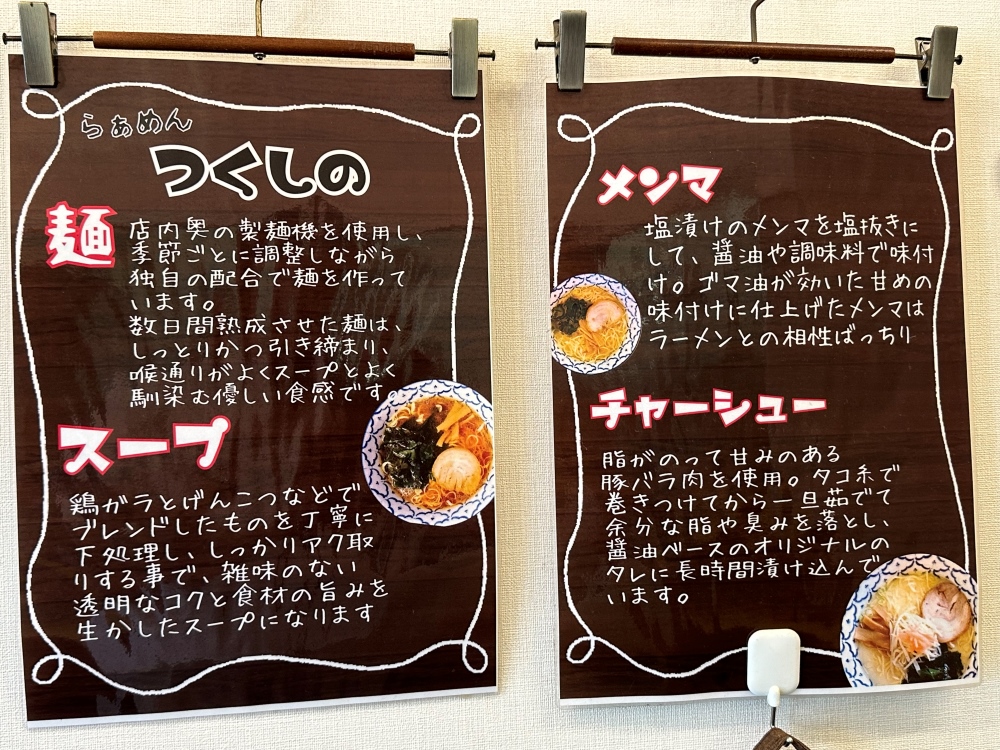 らぁめん
つくしの
麺
店内奥の製麺機を使用し、
季節ごとに調整しながら
独自の配合で麺を作って
います。
数日間熟成させた麺は、
しっとりかつ引き締まり、
喉通りがよくスープとよく
馴染む優しい食感です。
スープ
鶏ガラとげんこつなどで
ブレンドしたものを丁寧に
下処理し、しっかりアク取
りする事で、雑味のない
透明なコクと食材の旨みを
生かしたスープになります
メンマ
塩漬けのメンマを塩抜きに
して、醤油や調味料で味付
け。ゴマ油が効いた甘めの
味付けに仕上げたメンマは
ラーメンとの相性ばっちり
チャーシュー
脂がのって甘みのある
豚バラ肉を使用。タコ糸で
巻きつけてから一旦茹でて
余分な脂や臭みを落とし、
醤油ベースのオリジナルの
タレに長時間漬け込んで
います。